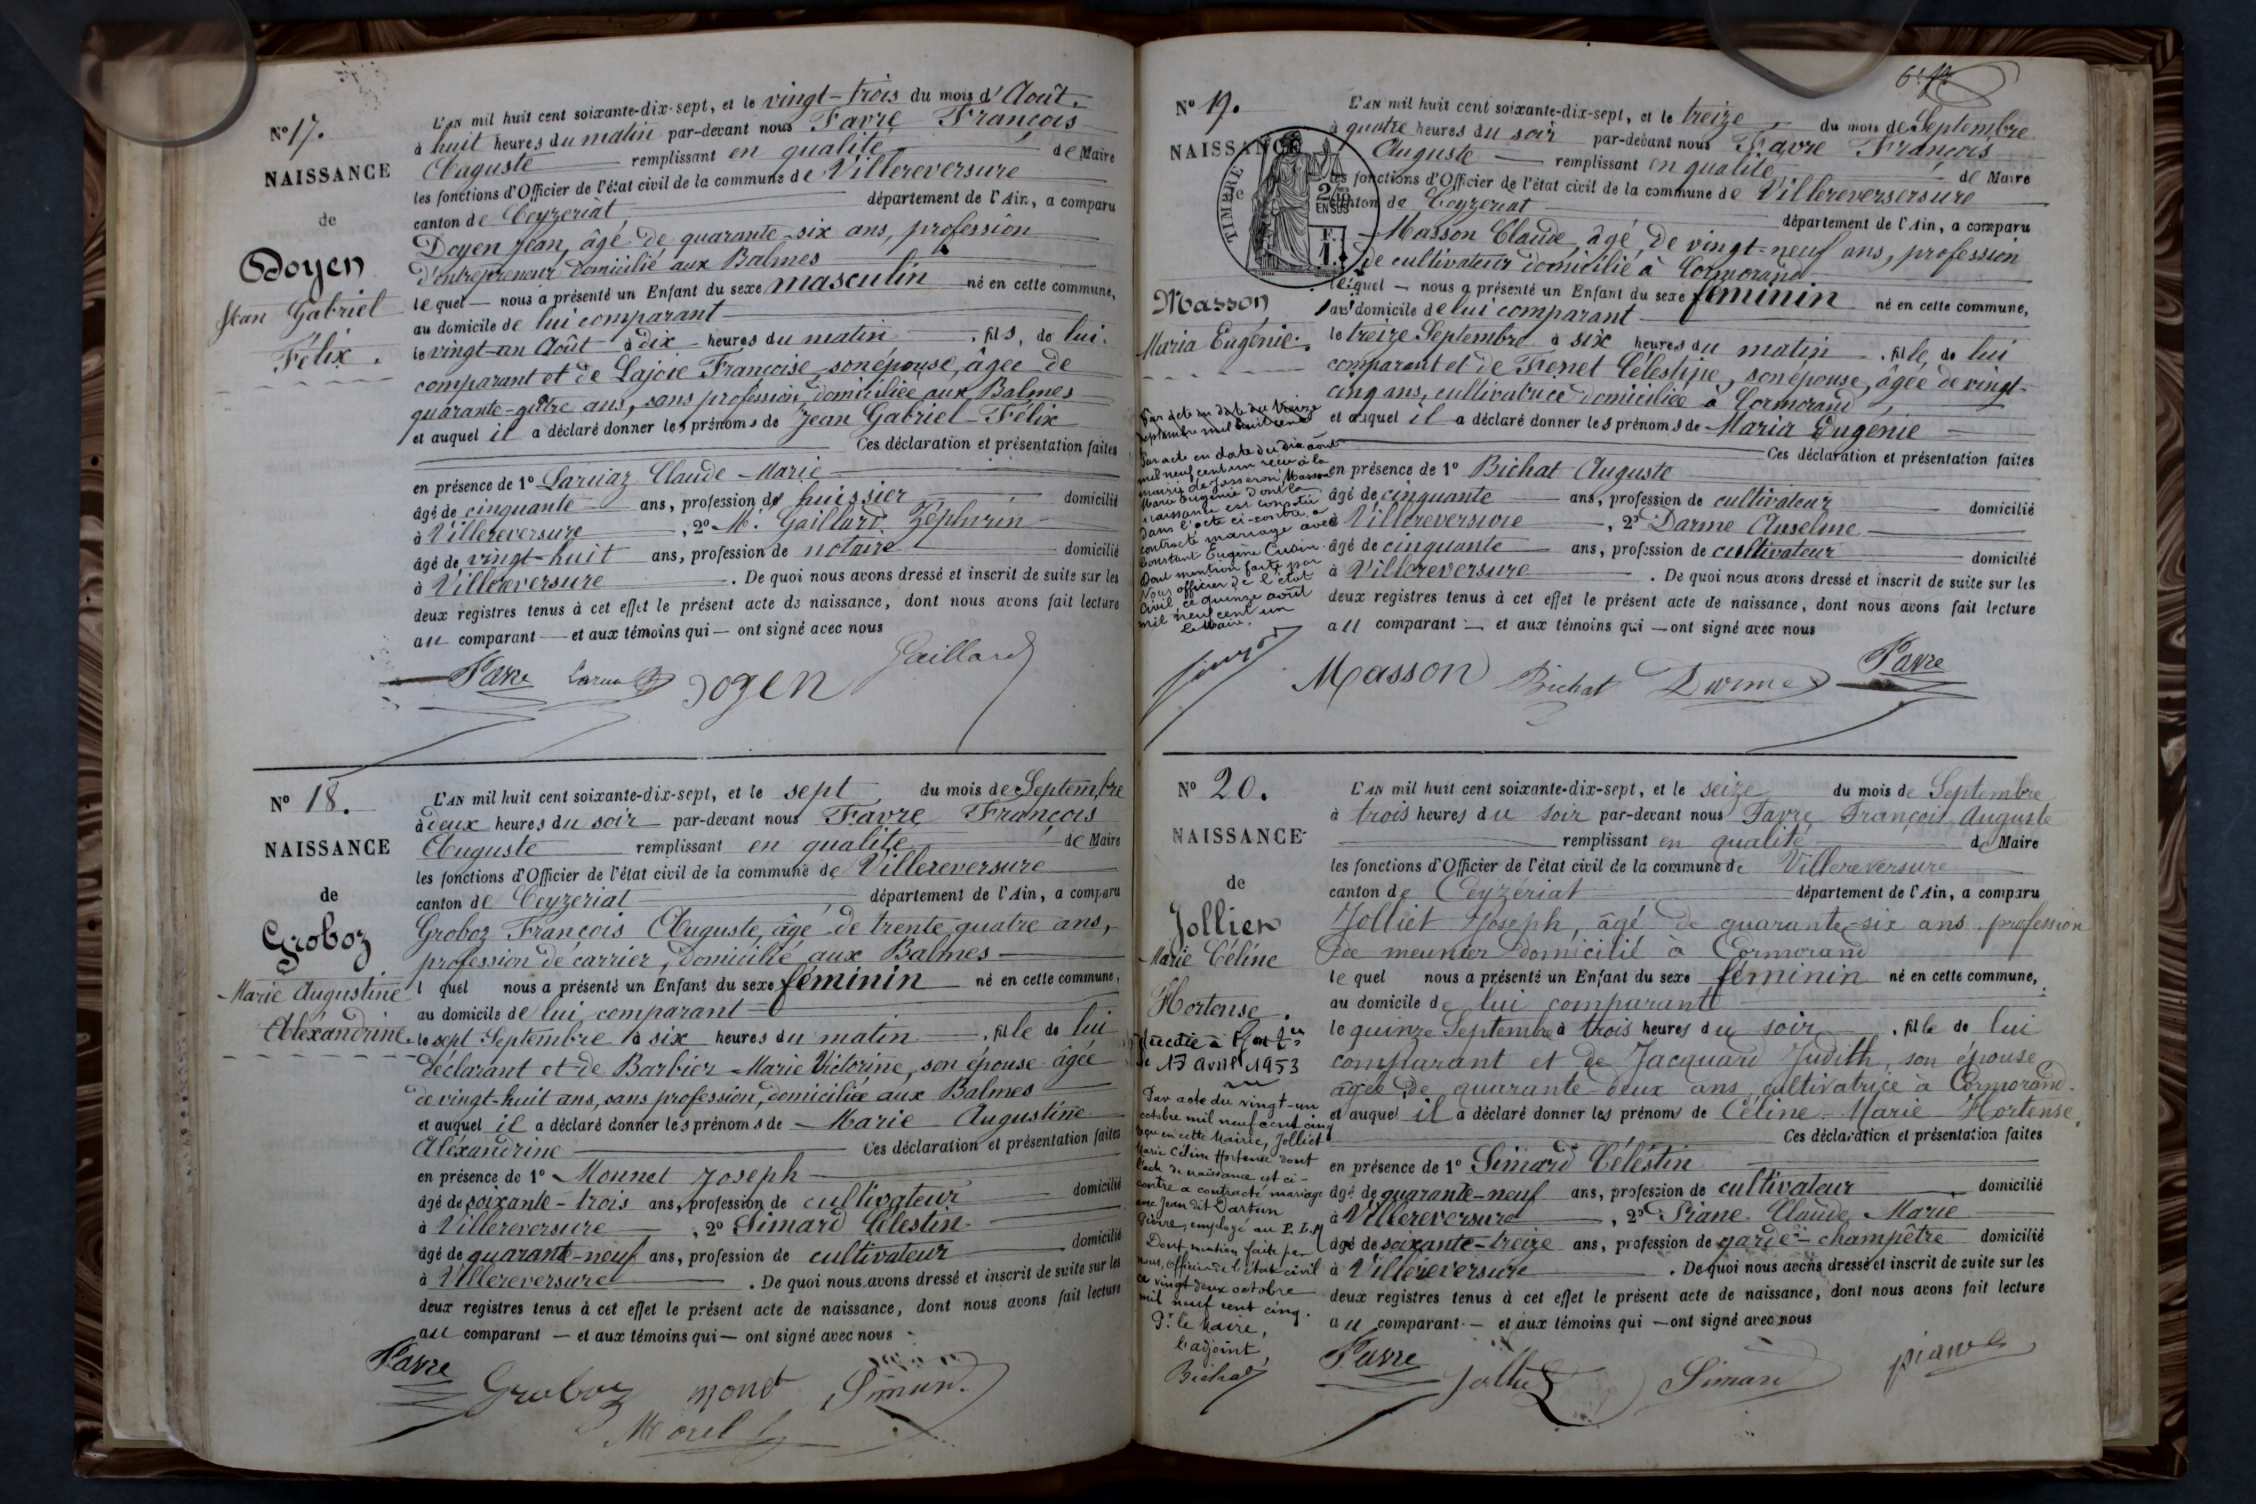 N° 17.
NAISSANCE
de
Doyen
Jean Gabriel
Félix.
L'AN mil huit cent soixante-dix-sept, et le vingt-trois du mois d'Août
à huit heures du matin par-devant nous Favre François
Auguste remplissant en qualité de Maire
les fonctions d'Officier de l'état civil de la commune de Villereversure
canton de Ceyzériat département de l'Ain, a comparu
Doyen Jean, âgé de quarante-six ans, profession
d'entrepreneur domicilié aux Balmes
le quel — nous a présenté un Enfant du sexe masculin né en cette commune,
au domicile de lui comparant
le vingt-un Août à dix heures du matin, fils, de lui
comparant et de Lajoie Françoise, son épouse, âgée de
quarante-qutre ans, sans profession, domiciliée aux Balmes
et auquel il a déclaré donner les prénoms de Jean Gabriel Félix
Ces déclaration et présentation faites
en présence de 1° Laruaz Claude-Marie
âgé de cinquante ans, profession de huissier domicilié
à Villereversure, 2° M. Gaillard Zéphirin
âgé de vingt-huit ans, profession de notaire domicilié
à Villereversure. De quoi nous avons dressé et inscrit de suite sur les
deux registres tenus à cet effet le présent acte de naissance, dont nous avons fait lecture
au comparant — et aux témoins qui — ont signé avec nous
Favre Doyen Gaillard
N° 18.
NAISSANCE
de
Groboz
Marie Augustine
Alexandrine.
L'AN mil huit cent soixante-dix-sept, et le sept du mois de Septembre
à deux heures du soir par-devant nous Favre François
Auguste remplissant en qualité de Maire
les fonctions d'Officier de l'état civil de la commune de Villereversure
canton de Ceyzeriat, département de l'Ain, a comparu
Groboz François Auguste, âgé de trente quatre ans,
profession de carrier, domicilié aux Balmes
l quel nous a présenté un Enfant du sexe féminin né en cette commune,
au domicile de lui comparant
le sept Septembre à six heures du matin, fille de lui
déclarant et de Barbier Marie Victorine, son épouse âgée
de vingt-huit ans, sans profession, domiciliée aux Balmes
et auquel il a déclaré donner les prénoms de Marie Augustine
Aléxandrine Ces déclaration et présentation faites
en présence de 1° Monnet Joseph
âgé de soixante-trois ans, profession de cultivateur domicilié
à Villereversure, 2° Simard Célestin
âgé de quarante-neuf ans, profession de cultivateur domicilié
à Villereversure. De quoi nous avons dressé et inscrit de suite sur les
deux registres tenus à cet effet le présent acte de naissance, dont nous avons fait lecture
au comparant — et aux témoins qui — ont signé avec nous
Favre Groboz monet Simard
Morel
N° 19.
NAISSANCE
de
TIMBRE
2/10 EN SUS
F. 1.
Masson
Maria Eugénie.
Par acte en date du treize
septembre mil huit cent
Par acte en date du dix août
mil neuf cent un reçu à la
mairie de Jasseron Masson
Marie Eugénie dont la
naissance est constatée
dans l'acte ci-contre a
contracté mariage avec
Constant Eugène Cudin.
Dont mention faite par
Nous officier de l'état
civil, ce quinze août
mil neuf cent un
Le Maire.
L'AN mil huit cent soixante-dix-sept, et le treize du mois de Septembre
à quatre heures du soir par-devant nous Favre François
Auguste — remplissant en qualité de Maire
les fonctions d'Officier de l'état civil de la commune de Villereversersure
canton de Ceyzeriat département de l'Ain, a comparu
Masson Claude, âgé de vingt-neuf ans, profession
de cultivateur domicilié à Cormorand
lequel — nous a présenté un Enfant du sexe féminin né en cette commune,
au domicile de lui comparant
le treize Septembre à six heures du matin, fille, de lui
comparant et de Ferret Célestine, son épouse, âgée de vingt-
cinq ans, cultivatrice domiciliée à Cormorand
et auquel il a déclaré donner les prénoms de Maria Eugénie
Ces déclaration et présentation faites
en présence de 1° Bichat Auguste
âgé de cinquante ans, profession de cultivateur domicilié
à Villereversure, 2° Darme Anselme
âgé de cinquante ans, profession de cultivateur domicilié
à Villereversure. De quoi nous avons dressé et inscrit de suite sur les
deux registres tenus à cet effet le présent acte de naissance, dont nous avons fait lecture
au comparant — et aux témoins qui — ont signé avec nous
Masson Bichat Darme Favre
N° 20.
NAISSANCE
de
Jollier
Marie Céline
Hortense.
le 17 avril 1953
Par acte du vingt-un
octobre mil neuf cent cinq
reçu en cette Mairie, Jolliet
Marie Céline Hortense dont
l'acte de naissance est ci-
contre a contracté mariage
avec Jean dit Dartun
Pierre, employé au P.L.M
Dont mention faite par
nous, officier de l'état civil
ce vingt deux octobre
mil neuf cent cinq.
Pr le Maire,
l'adjoint,
Bichat
L'AN mil huit cent soixante-dix-sept, et le seize du mois de Septembre
à trois heures du soir par-devant nous Favre François Auguste
remplissant en qualité de Maire
les fonctions d'Officier de l'état civil de la commune de Villereversure
canton de Ceyzériat département de l'Ain, a comparu
Jolliet Joseph, âgé de quarante-six ans profession
de meunier domicilié à Cormorand
le quel nous a présenté un Enfant du sexe féminin né en cette commune,
au domicile de lui comparant
le quinze Septembre à trois heures du soir, fille de lui
comparant et de Jacquard Judith, son épouse
âgée de quarante deux ans, cultivatrice à Cormorand.
et auquel il a déclaré donner les prénoms de Céline Marie Hortense.
Ces déclaration et présentation faites
en présence de 1° Simard Céléstin
âgé de quarante-neuf ans, profession de cultivateur domicilié
à Villereversure, 2° Piane Claude Marie
âgé de soixante-treize ans, profession de garde-champêtre domicilié
à Villereversure. De quoi nous avons dressé et inscrit de suite sur les
deux registres tenus à cet effet le présent acte de naissance, dont nous avons fait lecture
au comparant — et aux témoins qui — ont signé avec nous
Favre Jolliet Simard piane